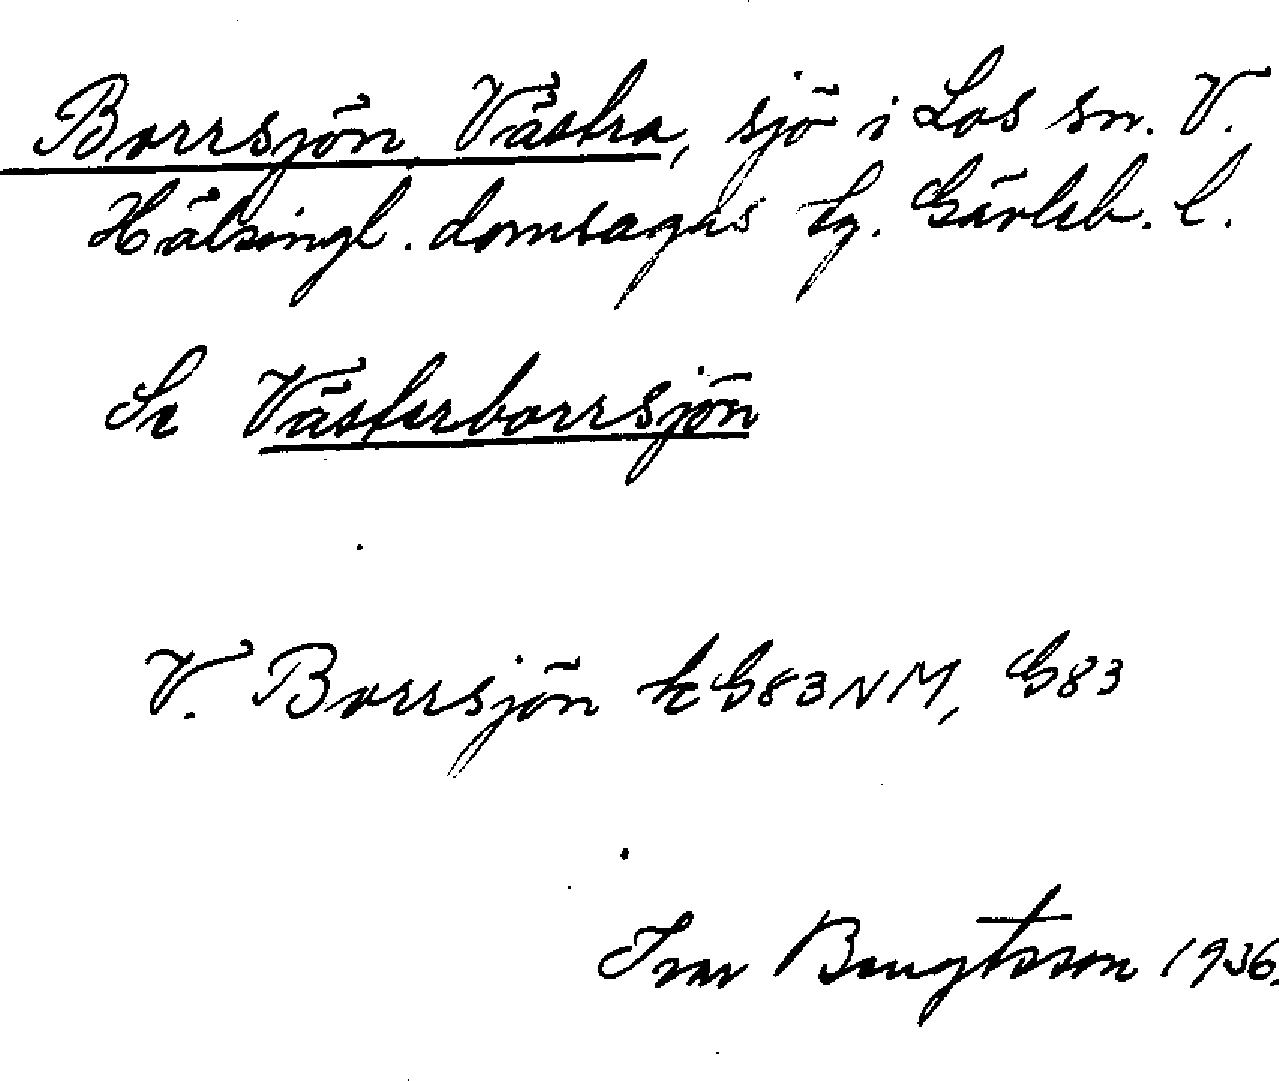 Borrsjön Västra, sjö i Los sn. V.
Hälsingl. domsagas tg. Gävleb. l.
Se Västerborrsjön
V. Borrsjön k G83NM, G83
Ivar Bengtsson 1936.